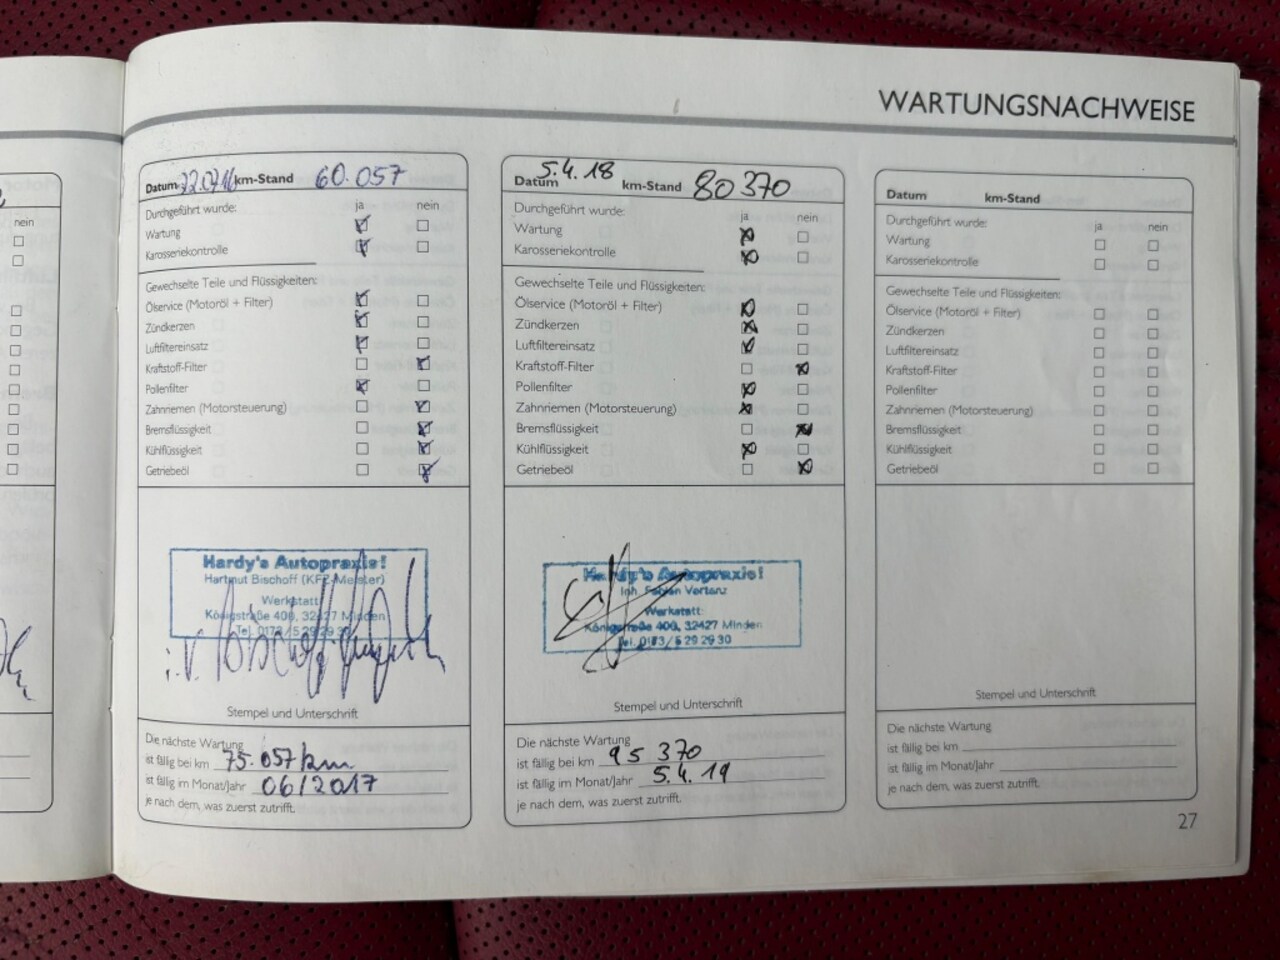 WARTUNGSNACHWEISE
nein
Datum 22.07.16 km-Stand 60.057
Durchgeführt wurde: ja nein
Wartung
Karosseriekontrolle
Gewechselte Teile und Flüssigkeiten:
Ölservice (Motoröl + Filter)
Zündkerzen
Luftfiltereinsatz
Kraftstoff-Filter
Pollenfilter
Zahnriemen (Motorsteuerung)
Bremsflüssigkeit
Kühlflüssigkeit
Getriebeöl
Hardy's Autopraxis!
Hartmut Bischoff (KFZ-Meister)
Werkstatt:
Königstraße 400, 32427 Minden
Tel. 0173/5 29 29 30
i.v.
Stempel und Unterschrift
Die nächste Wartung
ist fällig bei km 75.057 km
ist fällig im Monat/Jahr 06/2017
je nach dem, was zuerst zutrifft.
Datum 5.4.18 km-Stand 80 370
Durchgeführt wurde: ja nein
Wartung
Karosseriekontrolle
Gewechselte Teile und Flüssigkeiten:
Ölservice (Motoröl + Filter)
Zündkerzen
Luftfiltereinsatz
Kraftstoff-Filter
Pollenfilter
Zahnriemen (Motorsteuerung)
Bremsflüssigkeit
Kühlflüssigkeit
Getriebeöl
Hardy's Autopraxis!
Inh. Fabian Vortanz
Werkstatt:
Königstraße 400, 32427 Minden
Tel. 0173/5 29 29 30
Stempel und Unterschrift
Die nächste Wartung
ist fällig bei km 95 370
ist fällig im Monat/Jahr 5.4.19
je nach dem, was zuerst zutrifft.
Datum km-Stand
Durchgeführt wurde: ja nein
Wartung
Karosseriekontrolle
Gewechselte Teile und Flüssigkeiten:
Ölservice (Motoröl + Filter)
Zündkerzen
Luftfiltereinsatz
Kraftstoff-Filter
Pollenfilter
Zahnriemen (Motorsteuerung)
Bremsflüssigkeit
Kühlflüssigkeit
Getriebeöl
Stempel und Unterschrift
Die nächste Wartung
ist fällig bei km
ist fällig im Monat/Jahr
je nach dem, was zuerst zutrifft.
27